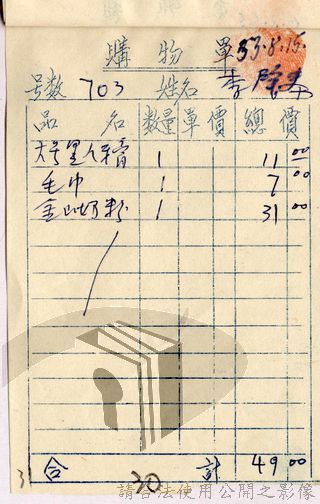 購物單 53.8.15.
号数 703 姓名 李
品名 数量 單價 總價
大号黑人牙膏 1 11 00
毛巾 1 7 00
奶粉 1 31 00
31 合 20 計 49 00
請合法使用公開之影像